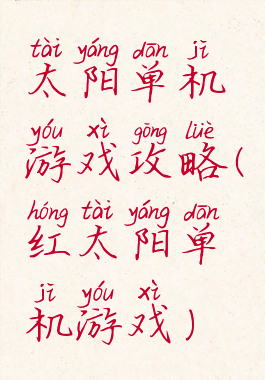 tài yáng dān jī
太阳单机
yóu xì gōng lüè
游戏攻略(
hóng tài yáng dān
红太阳单
jī yóu xì
机游戏)